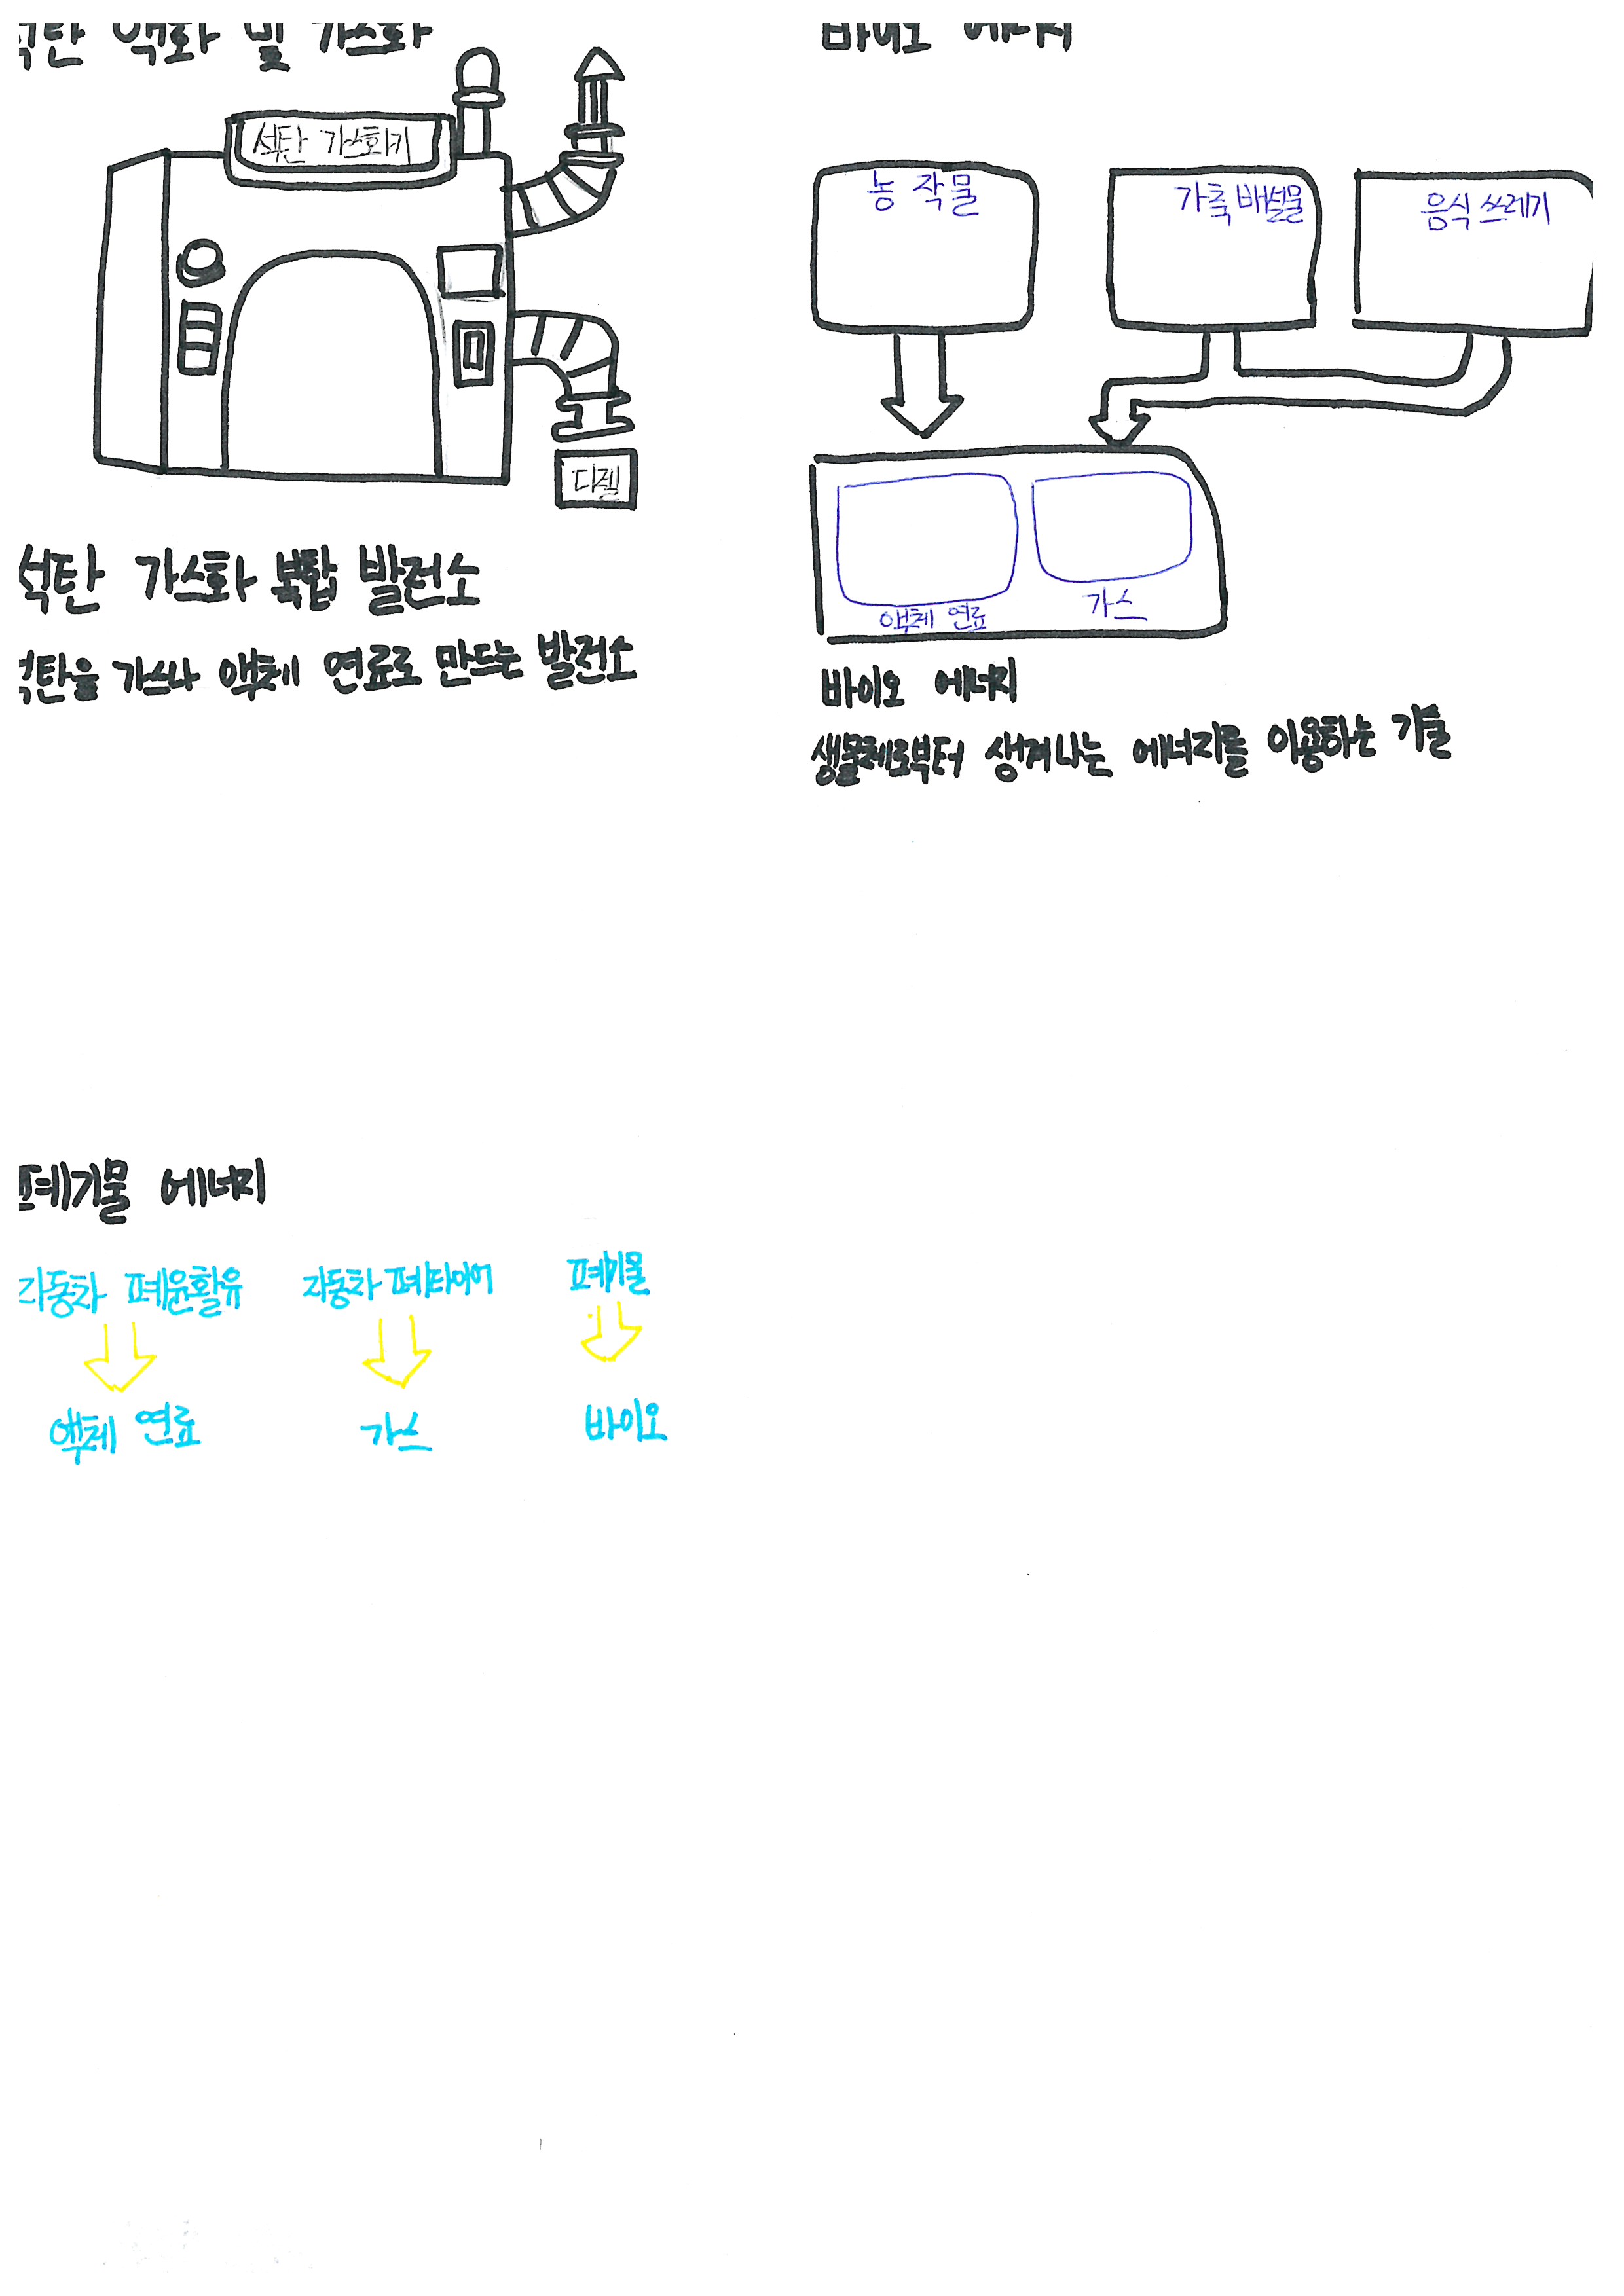 석탄 액화 및 가스화
석탄 가스화기
디젤
석탄 가스화 복합 발전소
석탄을 가스나 액체 연료로 만드는 발전소
바이오 에너지
농작물
가축배설물
음식쓰레기
액체 연료
가스
바이오 에너지
생물체로부터 생겨나는 에너지를 이용하는 기술
폐기물 에너지
자동차 폐윤활유
자동차 폐타이어
폐기물
액체 연료
가스
바이오